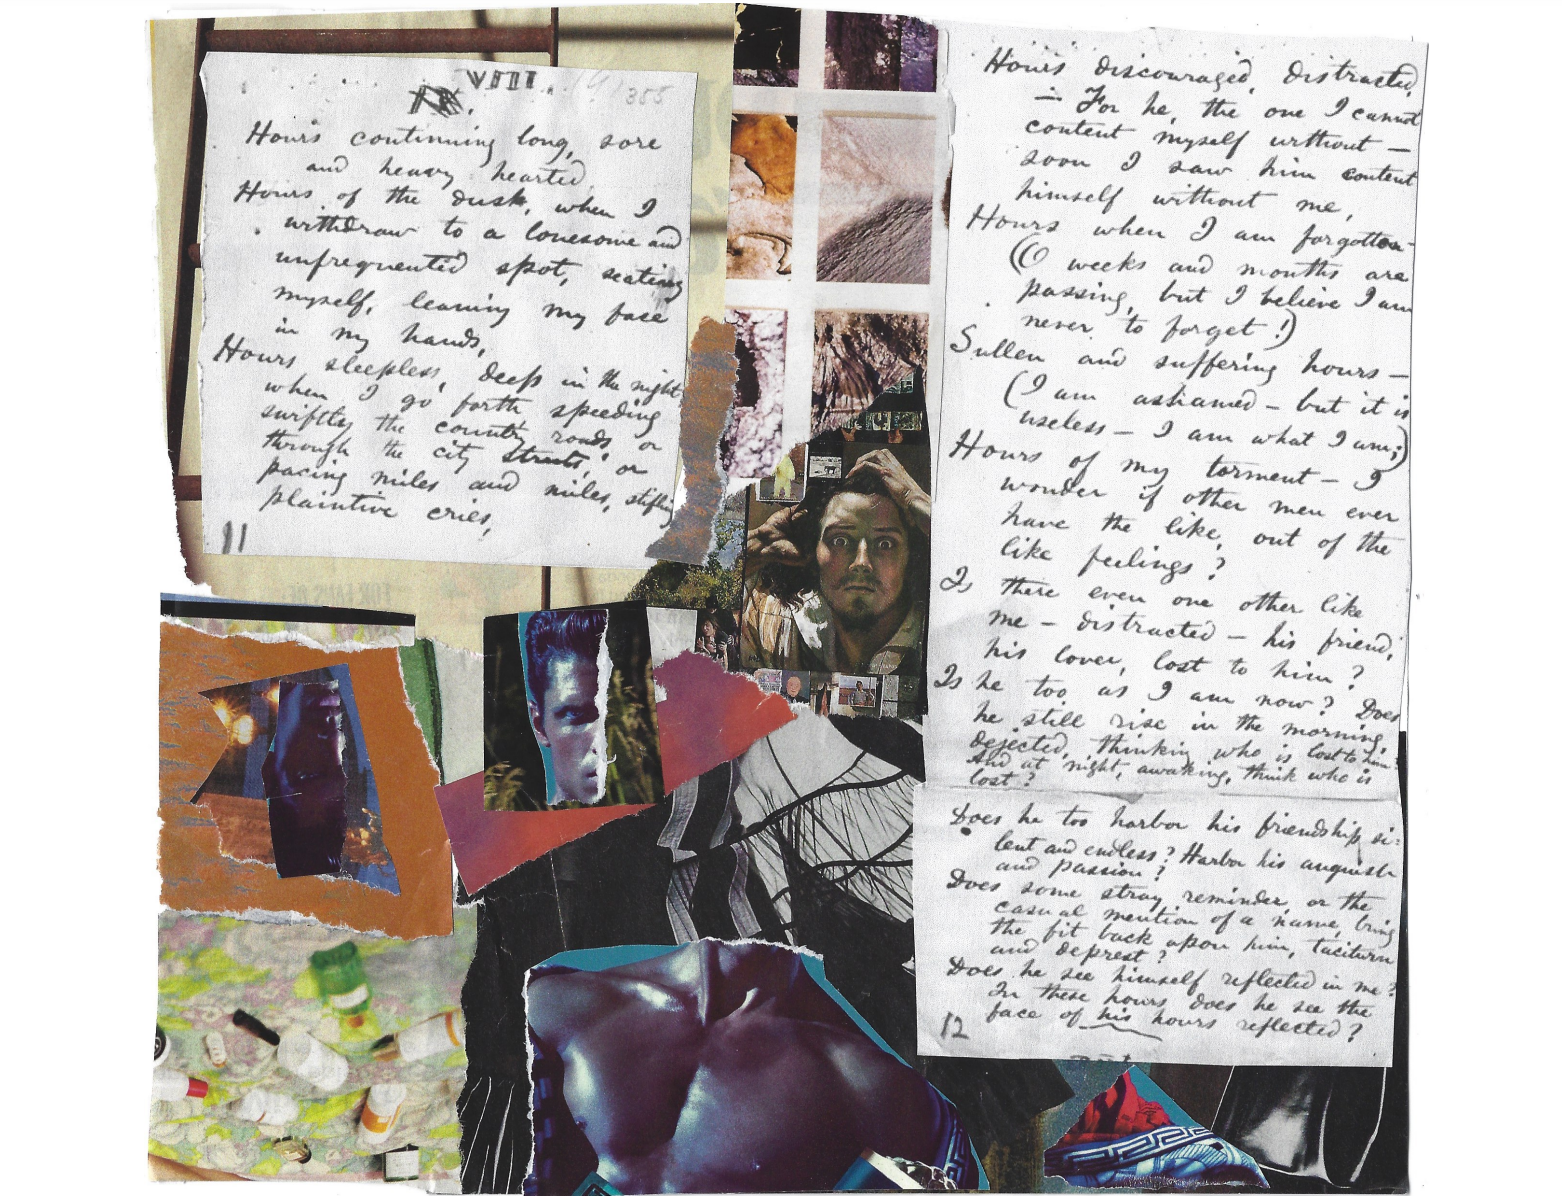 VIII.
IX.
355
Hours continuing long, sore
and heavy hearted,
Hours of the dusk, when I
withdraw to a lonesome and
unfrequented spot, seating
myself, leaning my face
in my hands,
Hours sleepless, deep in the night
when I go forth, speeding
swiftly the country roads, or
through the city streets, or
pacing miles and miles, stifling
plaintive cries,
11
Hours discouraged, distracted,
— For he, the one I cannot
content myself without —
soon I saw him content
himself without me,
Hours when I am forgotten —
(O weeks and months are
passing, but I believe I am
never to forget!)
Sullen and suffering hours —
(I am ashamed — but it is
useless — I am what I am;)
Hours of my torment — I
wonder if other men ever
have the like, out of the
like feelings?
Is there even one other like
me — distracted — his friend,
his lover, lost to him?
Is he too as I am now? Does
he still rise in the morning,
dejected, thinking who is lost to him?
And at night, awaking, think who is
lost?
Does he too harbor his friendship si-
lent and endless? Harbor his anguish
and passion?
Does some stray reminder, or the
casual mention of a name, bring
the fit back upon him, taciturn
and deprest?
Does he see himself reflected in me?
In these hours does he see the
face of his hours reflected?
12